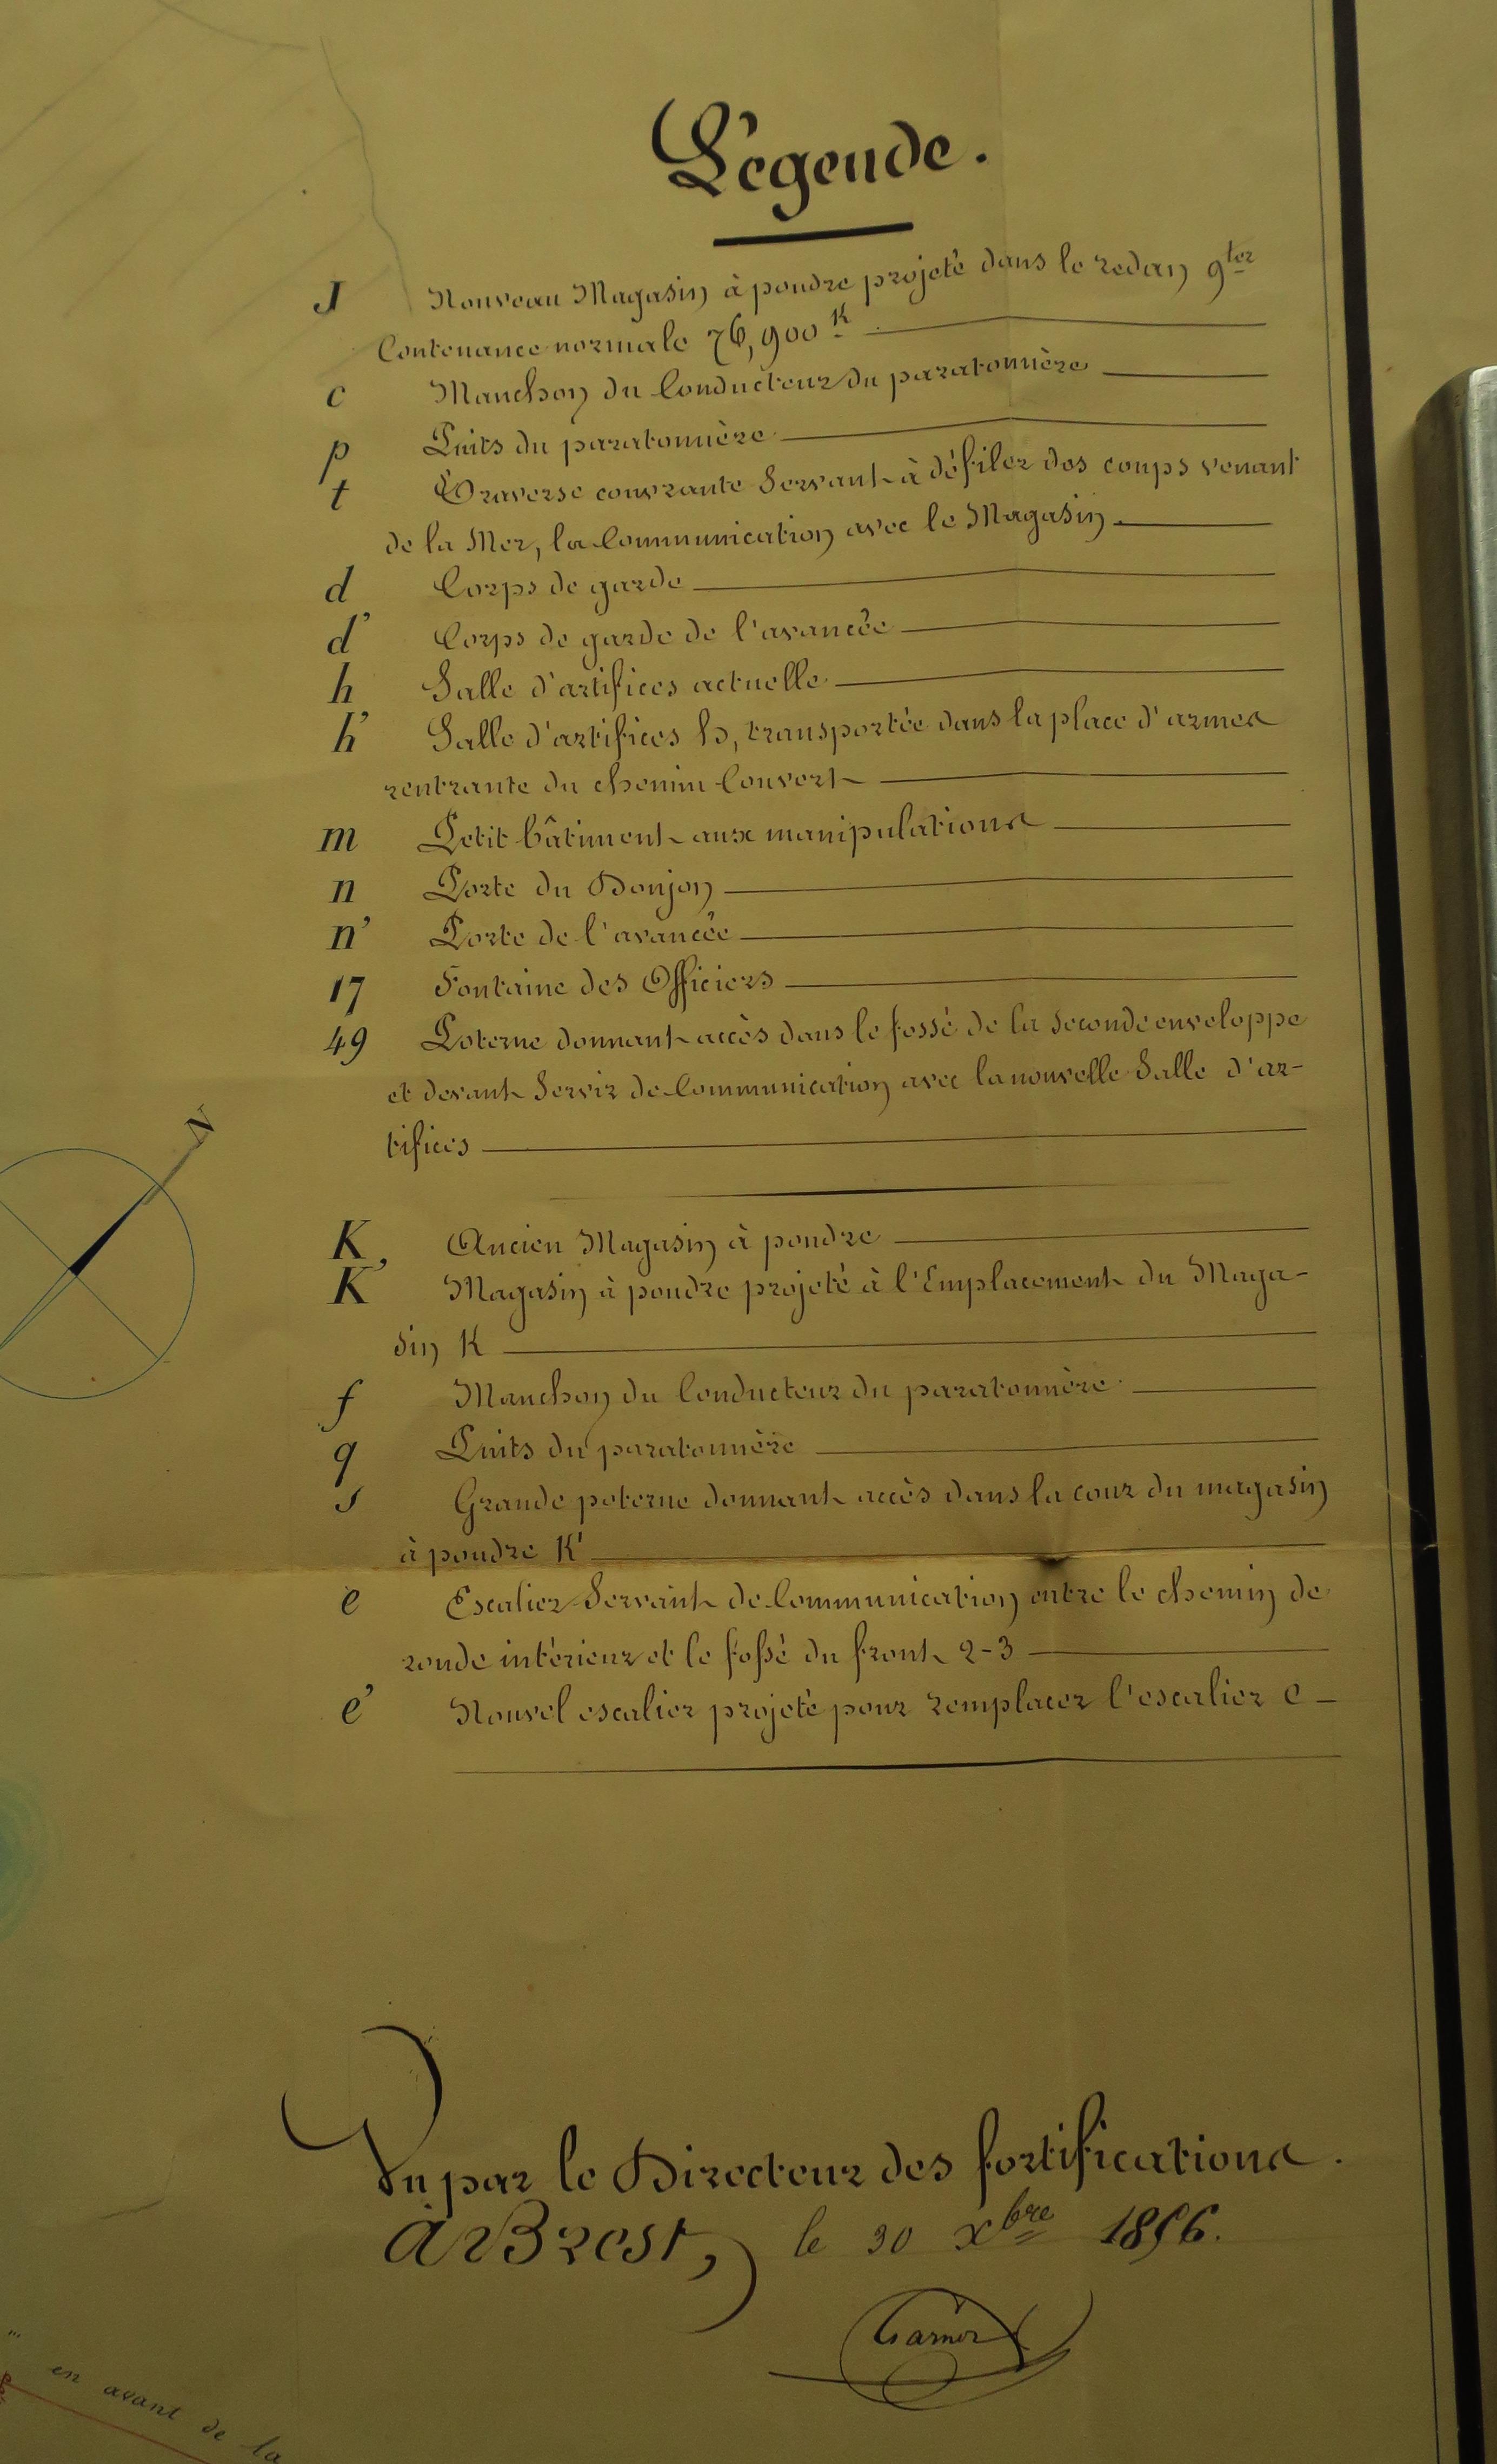 Légende.
J Nouveau Magasin à poudre projeté dans le redan 9ter
Contenance normale 76,900K
c Manchon du Conducteur du paratonnère
p Puits du paratonnère
t Traverse couvrante servant à défiler des coups venant
de la Mer, la Communication avec le Magasin
d Corps de garde
d' Corps de garde de l'avancée
h Salle d'artifices actuelle
h' Salle d'artifices h, transportée dans la place d'armes
rentrante du chemin Couvert
m Petit bâtiment aux manipulations
n Porte du Donjon
n' Porte de l'avancée
17 Fontaine des Officiers
49 Poterne donnant accès dans le fossé de la seconde enveloppe
et devant servir de Communication avec la nouvelle Salle d'ar-
tifices
N
K Ancien Magasin à poudre
K' Magasin à poudre projeté à l'Emplacement du Maga-
sin K
f Manchon du Conducteur du paratonnère
q Puits du paratonnère
s Grande poterne donnant accès dans la cour du magasin
à poudre K'
e Escalier servant de Communication entre le chemin de
ronde intérieur et le fossé du front 2-3
e' Nouvel escalier projeté pour remplacer l'escalier e
Vu par le Directeur des fortifications.
à Brest, le 30 Xbre 1856.
en avant de la